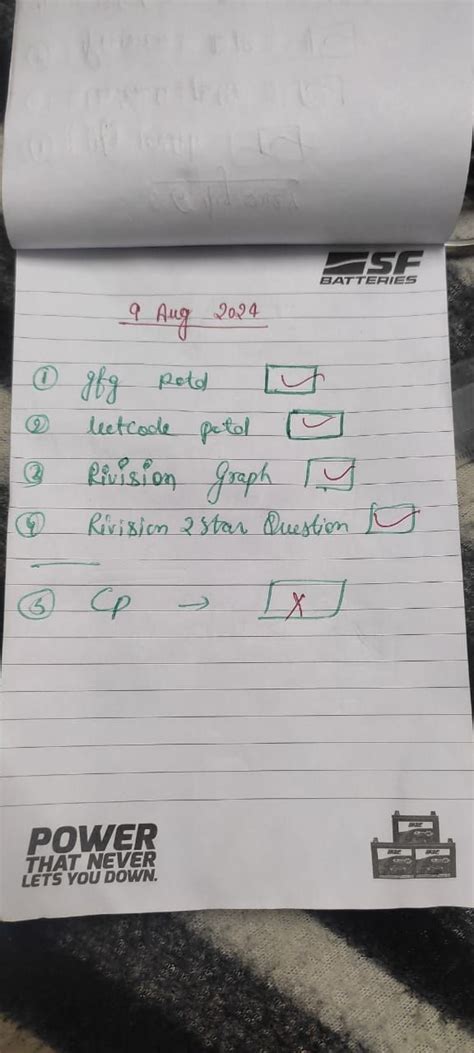 SF
BATTERIES
9 Aug 2024
① gfg potd
② leetcode potd
③ Rivision Graph
④ Rivision 2 star Question
⑤ Cp → X
POWER
THAT NEVER
LETS YOU DOWN.